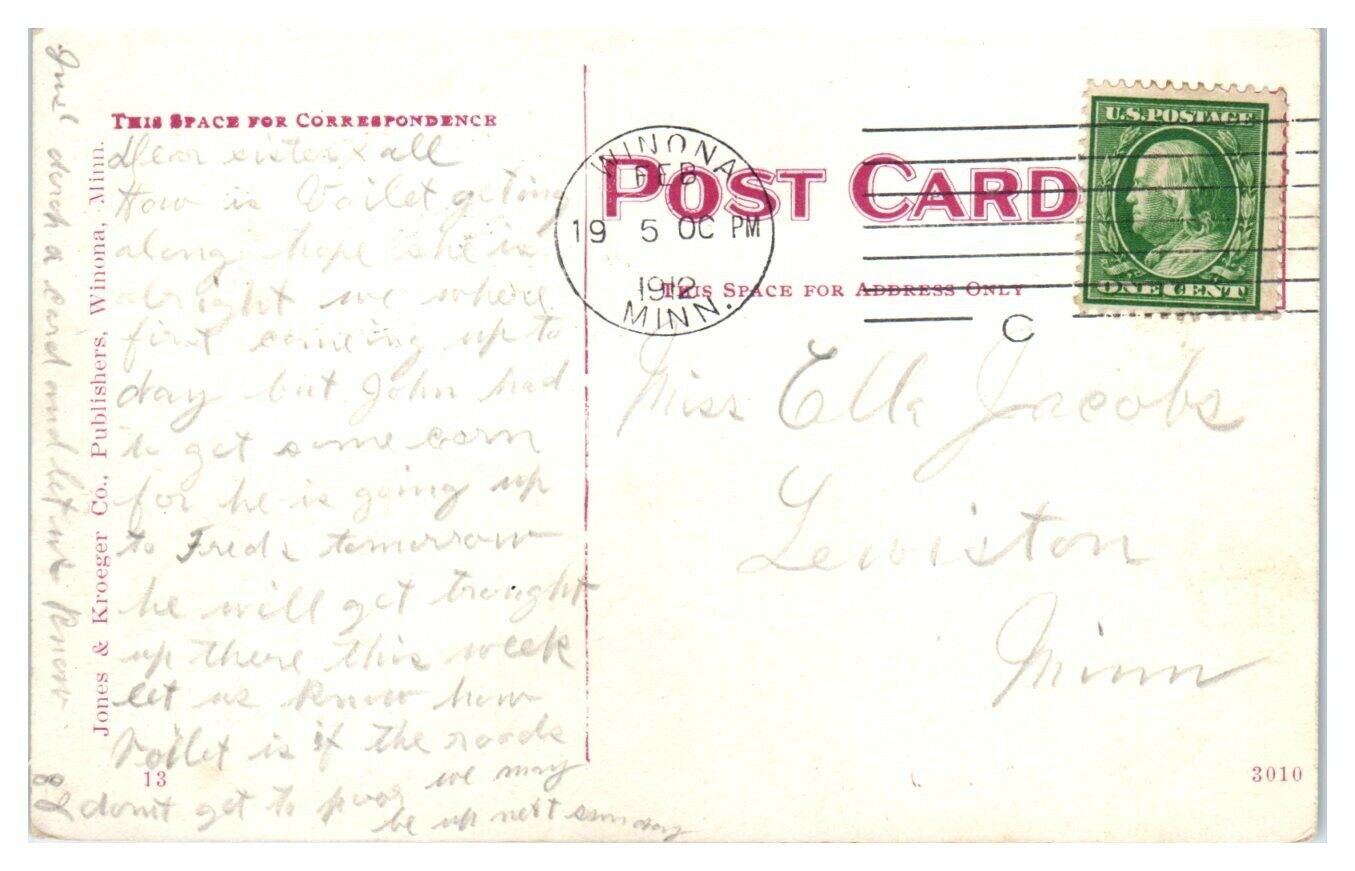 THIS SPACE FOR CORRESPONDENCE
Dear sister & all
How is Voilet geting
along hope she is
alright we where
first comeing up to
day but John had
to get some corn
for he is going up
to Freds tomorrow
he will get
up there this week
let us know how
Voilet is if the roads
dont get to poor we may
be up next sunday
drop a card and let us know
Jones & Kroeger Co., Publishers, Winona, Minn.
13
POST CARD
THIS SPACE FOR ADDRESS ONLY
WINONA
FEB
19 5 OC PM
1912
MINN.
C
U.S. POSTAGE
ONE CENT
Miss Ella Jacobs
Lewiston
Minn
3010